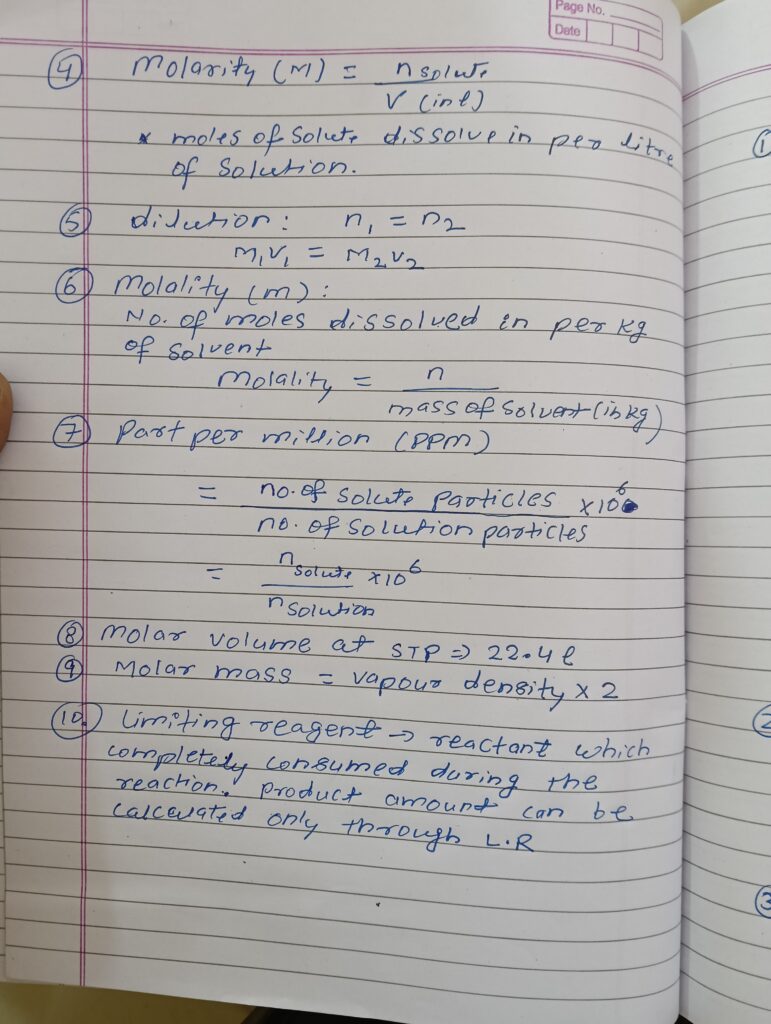 Page No.
Date
④ Molarity (M) = n solute
V (in l)
* moles of Solute dissolve in per litre
of Solution.
⑤ dilution : n₁ = n₂
M₁V₁ = M₂V₂
⑥ Molality (m) :
No. of moles dissolved in per kg
of Solvent
Molality = n
mass of Solvent (in kg)
⑦ Part per million (PPM)
= no. of solute particles × 10⁶
no. of solution particles
= n solute × 10⁶
n solution
⑧ Molar volume at STP ⇒ 22.4 l
⑨ Molar mass = vapour density × 2
⑩ Limiting reagent → reactant which
completely consumed during the
reaction. Product amount can be
calculated only through L.R
①
②
③